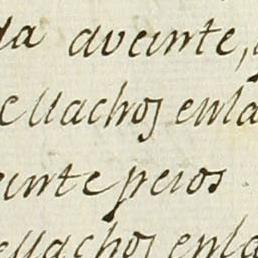 da aveinte,
ellachos enla
einte pesos
ellachos enla